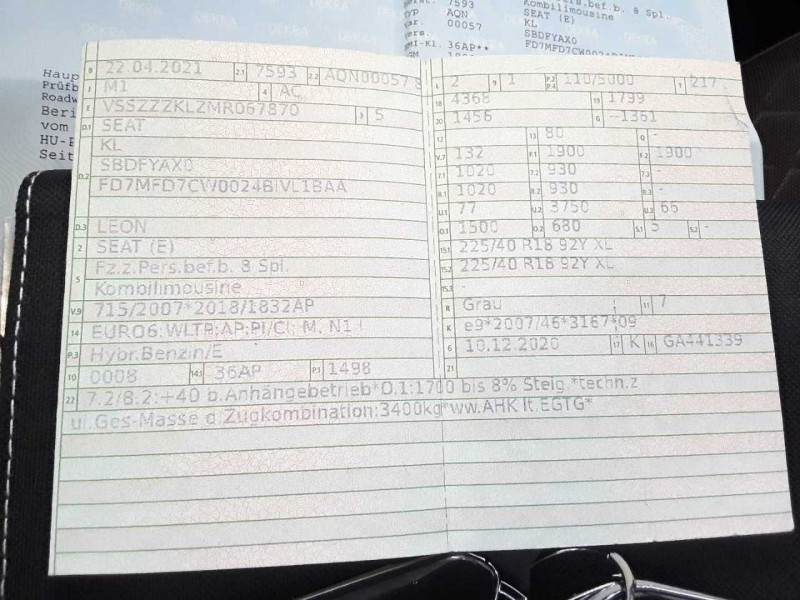 7593
AQN
00057
36AP**
Pers.bef.b. 8 Spl.
Kombilimousine
SEAT (E)
KL
SBDFYAX0
Haup
Prüfb
Roadw
Beri
vom
HU-
Seit
B 22.04.2021 2.1 7593 2.2 AQN00057 8
J M1 4 AC
E VSSZZZKLZMR067870 3 5
D.1 SEAT
KL
D.2 SBDFYAX0
FD7MFD7CW0024BIVL1BAA
D.3 LEON
2 SEAT (E)
5 Fz.z.Pers.bef.b. 8 Spl.
Kombilimousine
V.9 715/2007*2018/1832AP
14 EURO6;WLTP;AP;PI/CI; M, N1 I
P.3 Hybr.Benzin/E
10 0008 14.1 36AP P.1 1498
L 2 9 1 P.2 P.4 110/5000 T 217
18 4368 19 1799
20 1456 G -1361
12 - 13 80 Q -
V.7 132 F.1 1900 F.2 1900
7.1 1020 7.2 930 7.3 -
8.1 1020 8.2 930 8.3 -
U.1 77 U.2 3750 U.3 66
O.1 1500 O.2 680 S.1 5 S.2 -
15.1 225/40 R18 92Y XL
15.2 225/40 R18 92Y XL
15.3 -
R Grau 11 7
K e9*2007/46*3167*09
6 10.12.2020 17 K 16 GA441339
21
22 7.2/8.2:+40 b.Anhängebetrieb*O.1:1700 bis 8% Steig.*techn.z
ul.Ges-Masse d.Zugkombination:3400kg*ww.AHK lt.EGTG*